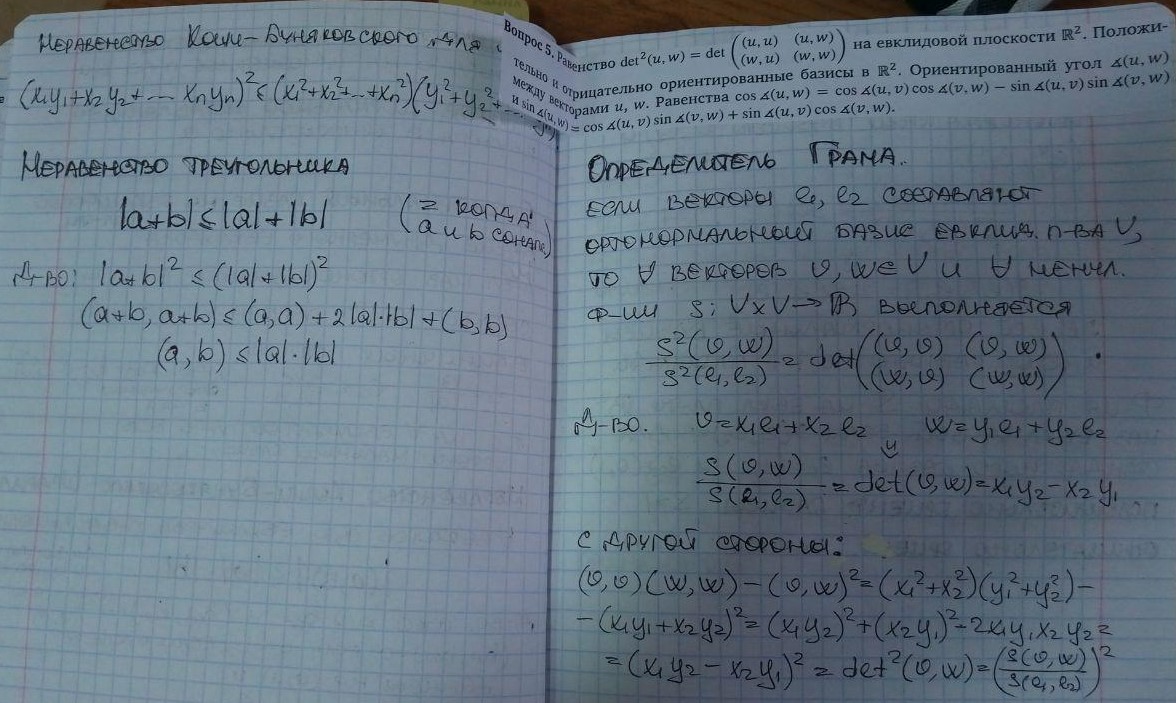 Неравенство Коши-Буняковского для
(x₁y₁+x₂y₂+... xₙyₙ)² ≤ (x₁²+x₂²+...+xₙ²)(y₁²+y₂²+...
Неравенство треугольника
|a+b| ≤ |a|+|b| (= когда
a и b сонапр)
Д-во: |a+b|² ≤ (|a|+|b|)²
(a+b, a+b) ≤ (a,a) + 2|a|·|b| + (b,b)
(a,b) ≤ |a|·|b|
Вопрос 5. Равенство det²(u, w) = det ((u, u) (u, w)
(w, u) (w, w)) на евклидовой плоскости ℝ². Положи-
тельно и отрицательно ориентированные базисы в ℝ². Ориентированный угол ∡(u, w)
между векторами u, w. Равенства cos ∡(u, w) = cos ∡(u, v) cos ∡(v, w) − sin ∡(u, v) sin ∡(v, w)
и sin ∡(u, w) = cos ∡(u, v) sin ∡(v, w) + sin ∡(u, v) cos ∡(v, w).
Определитель Грама.
Если векторы e₁, e₂ составляют
ортонормальный базис евклид. п-ва V,
то ∀ векторов v, w ∈ V и ∀ ненул.
ф-ии s: V×V→ℝ выполняется
s²(v,w)/s²(e₁,e₂) = det((v,v) (v,w)
(w,v) (w,w)).
Д-во. v=x₁e₁+x₂e₂ w=y₁e₁+y₂e₂
⇓
s(v,w)/s(e₁,e₂) = det(v,w) = x₁y₂−x₂y₁
С другой стороны:
(v,v)(w,w)−(v,w)² = (x₁²+x₂²)(y₁²+y₂²)−
−(x₁y₁+x₂y₂)² = (x₁y₂)²+(x₂y₁)²−2x₁y₁x₂y₂ =
= (x₁y₂−x₂y₁)² = det²(v,w) = (s(v,w)/s(e₁,e₂))²